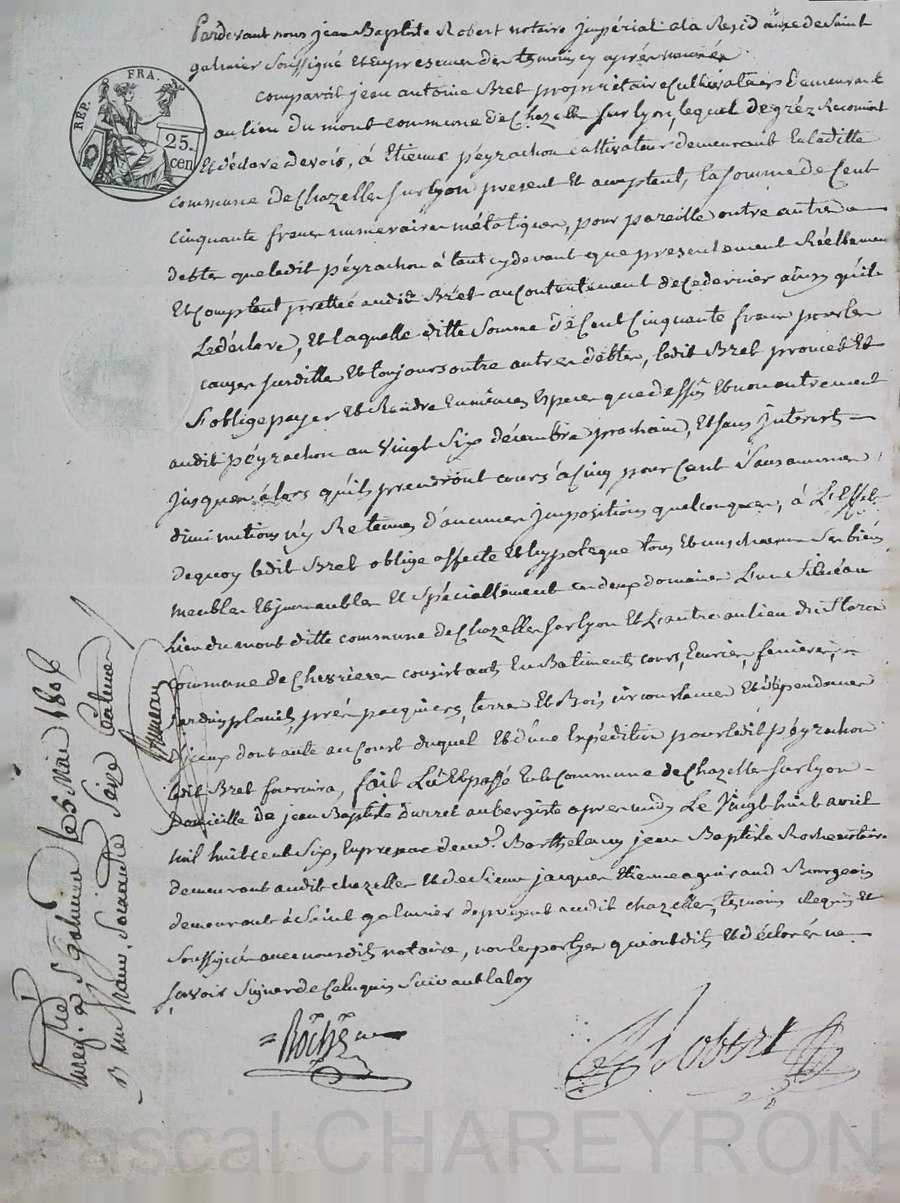 Pardevant nous jean Baptiste Robert notaire Impérial ala Residance de Saint
galmier Soussigné Et enpresence des temoins cy après només
RÉP. FRA.
25. cen
Comparut jean antoine Bret propriétaire Cultivateur Demeurant
au lieu du mont Commune de Chazelle sur lyon, lequel de gréz Reconnoit
Et déclare devoir, à Etienne péyrachon cultivateur demeurant En laditte
Commune de Chazelle sur lyon present Et acceptent, la somme de Cent
Cinquante francs numeraires métalique, pour pareille outre autres
dettes que ledit péyrachon à tant cydevant que presentement Réellement
Et Comptent pretté audit Bret au Contentement de Ce dernier ainsy qu'il
Le déclare, Et laquelle ditte Somme de Cent Cinquante francs pour les
causes susditte Et toujours outre autres débtes, ledit Bret promet Et
S'oblige payer Et Rendre En mêmes Espece que dessus Et non autrement
audit péyrachon au Vingt Six décembre prochain, Et sans Interest
jusquen à lors qu'ils prendront cours à Cinq pour Cent Sans aucune
diminutions n'y Retenues d'aucunes Impositions quelconques, à L'Effet
dequoy ledit Bret oblige affecte Et hypoteque tous Et un chacun Ses biens
meubles Et jmmeubles Et spécialement Ces deux domaines L'un Situé au
Lieu du mont ditte commune de Chazelle sur lyon Et L'autre au lieu du
Commune de Chevrieres consistants En Batiments, cours, Ecuries, fenieres,
jardins plants, prés pacquiers, terre Et Bois circonstance Et dépendances
D'jceux dont acte au Court duquel Et d'une Expédition pour ledit péyrachon
ledit Bret fournira, fait Lû Et passé En la Commune de Chazelle sur lyon
Domicille de jean Baptiste Durret aubergiste apres midy Le Vingt huit avril
mil huit cent Six, En presence de Barthelemy jean Baptiste Roche notaire
demeurant audit chazelle Et de Sieur jacques Etienne aguiraud Bourgeois
demeurant à Saint galmier de present audit chazelle, temoins Requis Et
Soussignés avec nousdits notaire, non les parties qui ont dit Et déclaré ne
savoir Signer de Ce Enquis Suivant la loy
Roche
Robert
Enreg. à S. galmier le 5 Mai 1806
un franc Soixante Seize Centimes
Pascal CHAREYRON